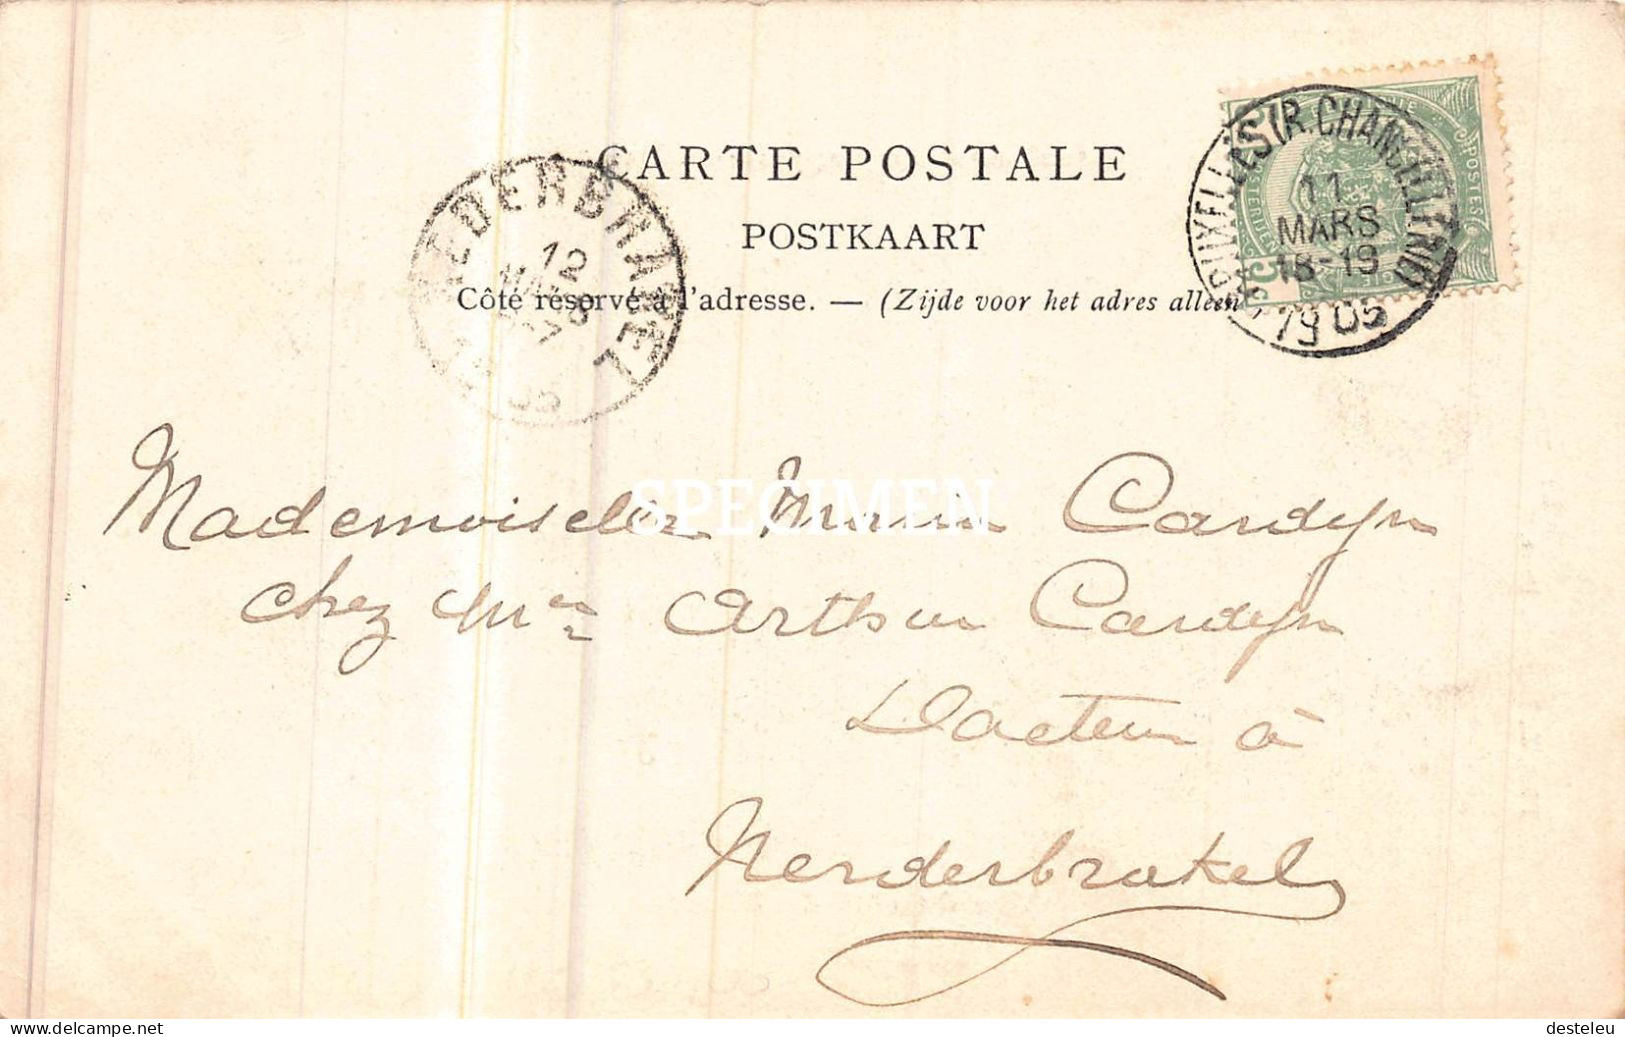 CARTE POSTALE
POSTKAART
Côté réservé à l'adresse. — (Zijde voor het adres alleen
BRUXELLES (R. CHANCELLERIE)
11
MARS
18-19
1905
POSTES
5
NEDERBRAKEL
12
05
SPECIMEN
Mademoiselle Maria Cardyn
chez Mr Arthur Cardyn
Docteur à
Nederbrakel
delcampe.net
desteleu